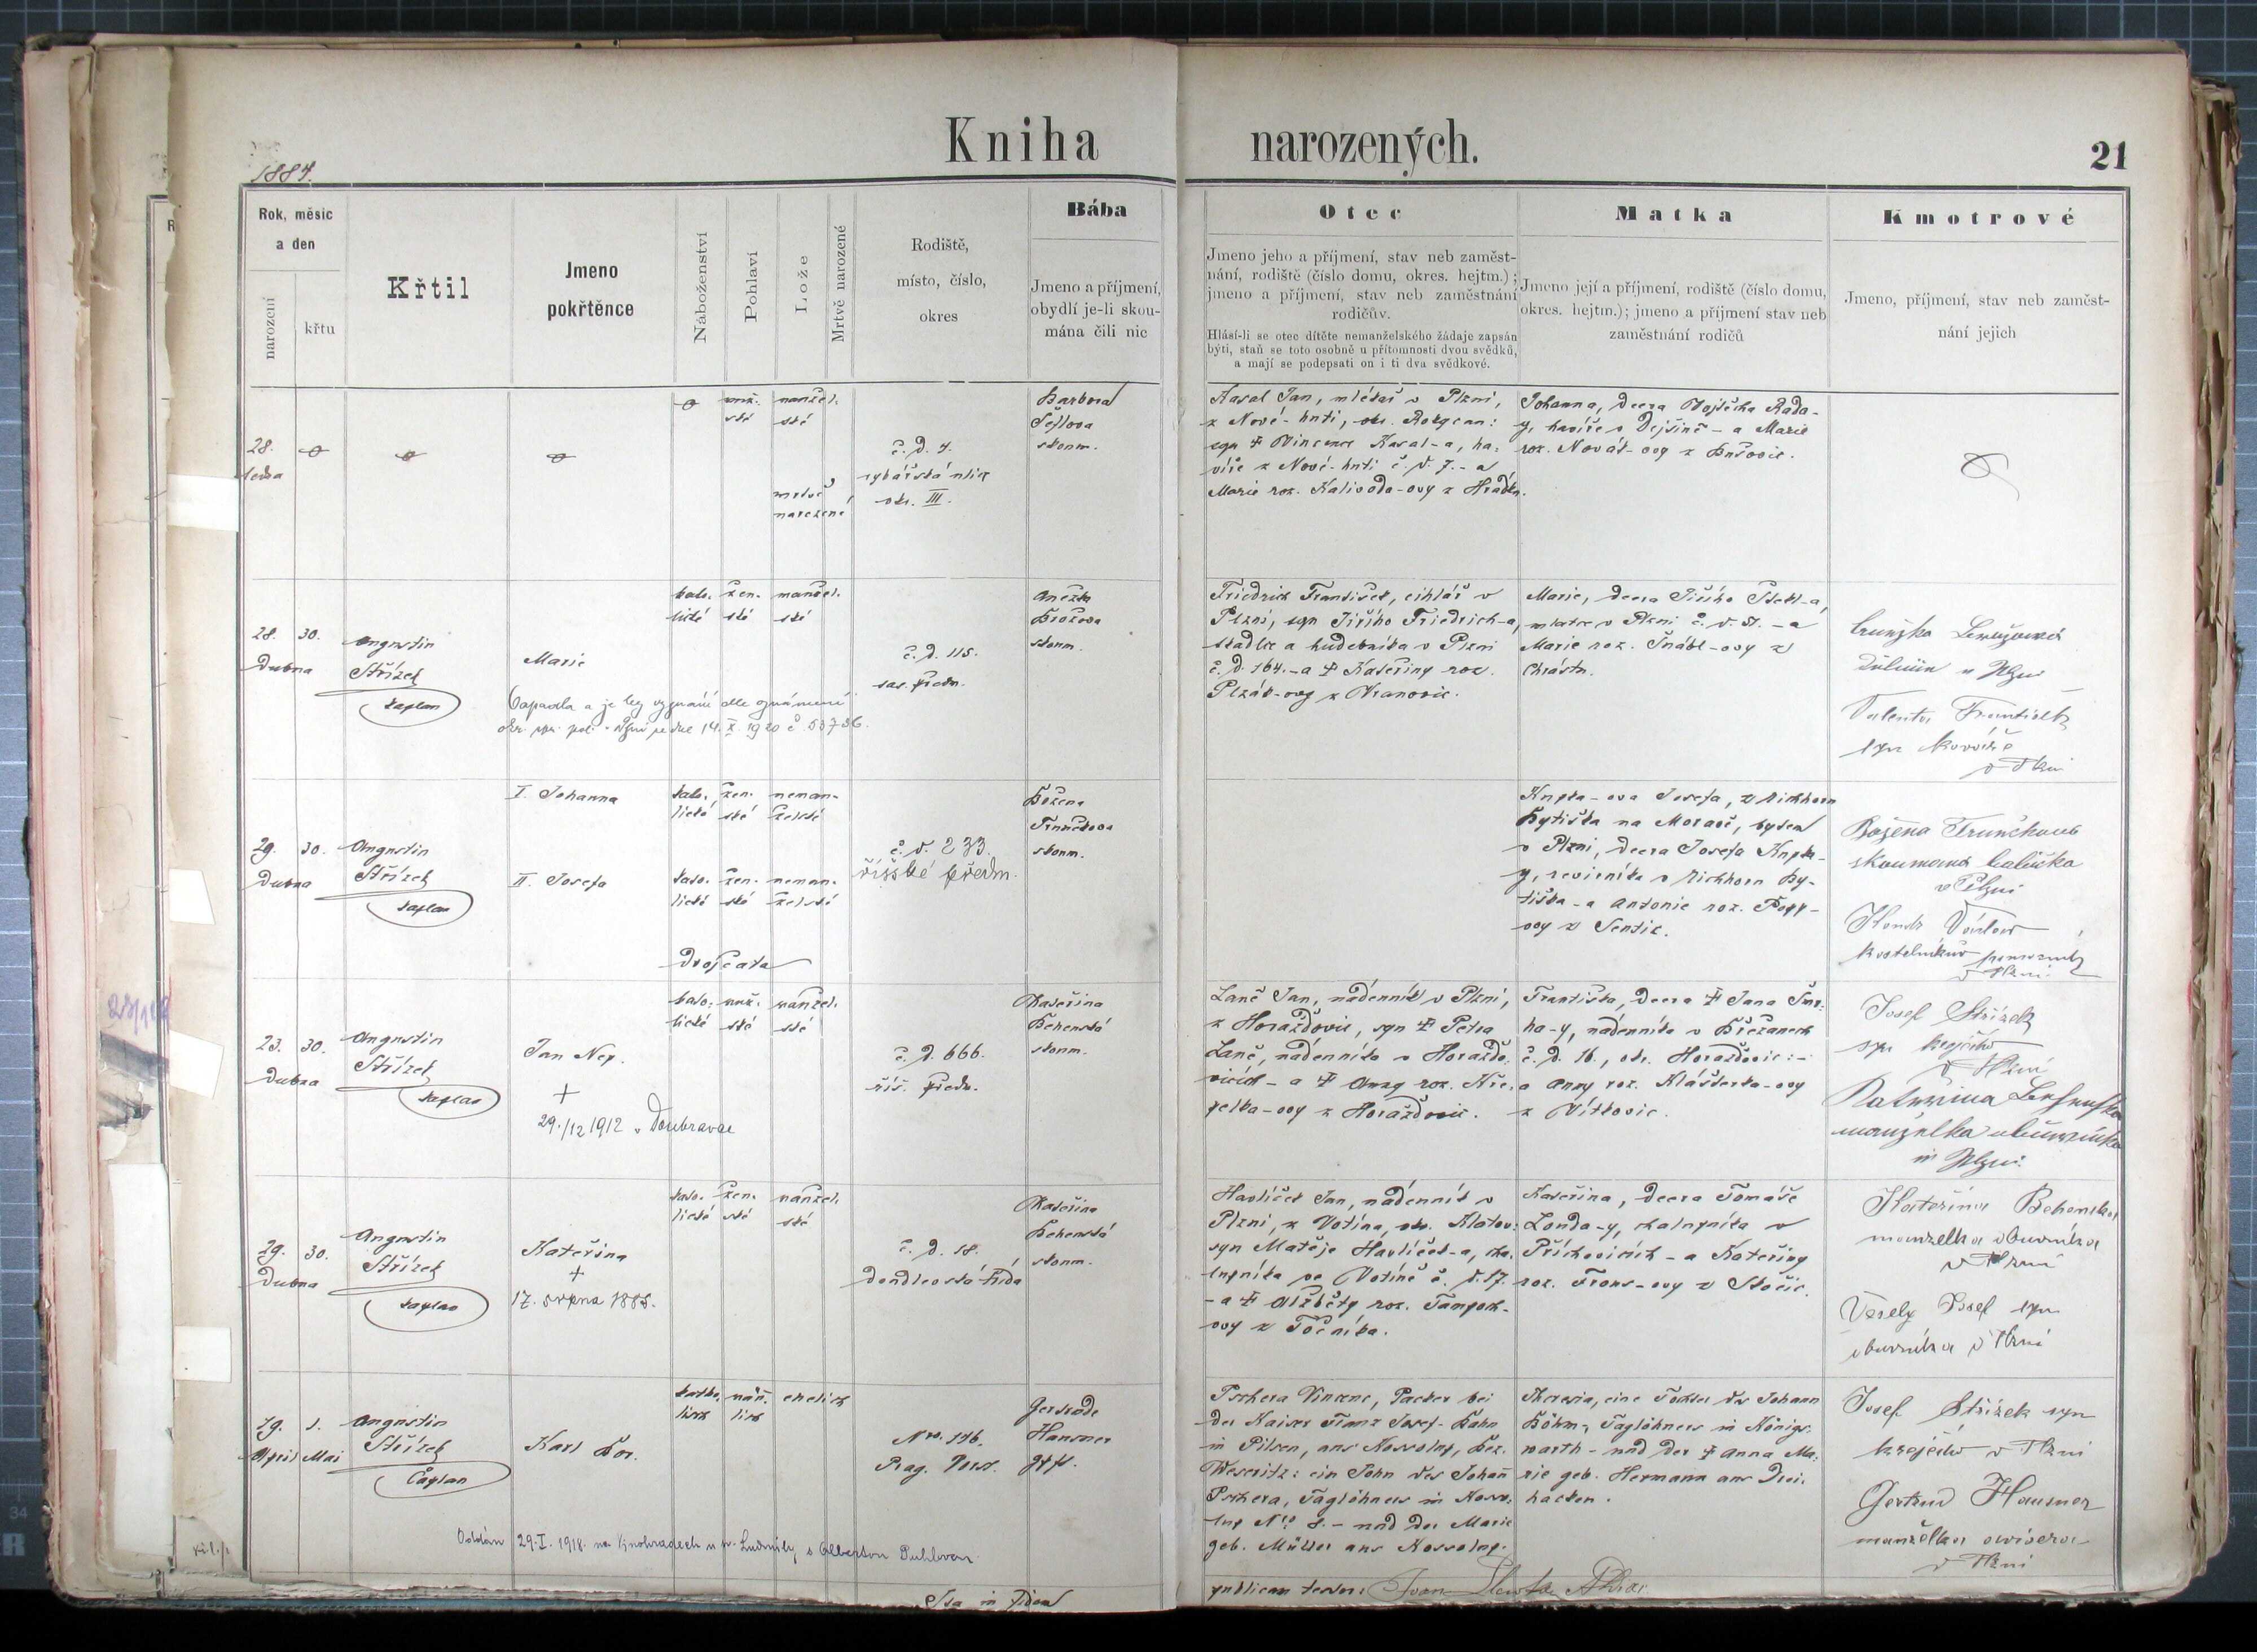 Kniha narozených.
21
1884.
Rok, měsíc
a den
narození
křtu
Křtil
Jmeno
pokřtěnce
Náboženství
Pohlaví
Lože
Mrtvě narozené
Rodiště,
místo, číslo,
okres
Bába
Jmeno a příjmení,
obydlí je-li skou-
mána čili nic
Otec
Jmeno jeho a příjmení, stav neb zaměst-
nání, rodiště (číslo domu, okres. hejtm.);
jmeno a příjmení, stav neb zaměstnání
rodičův.
Hlásí-li se otec dítěte nemanželského žádaje zapsán
býti, staň se toto osobně u přítomnosti dvou svědků,
a mají se podepsati on i ti dva svědkové.
Matka
Jmeno její a příjmení, rodiště (číslo domu,
okres. hejtm.); jmeno a příjmení stav neb
zaměstnání rodičů
Kmotrové
Jmeno, příjmení, stav neb zaměst-
nání jejich
28.
muž-
ské
manžel.
ské
mrtvě
narozené
č. d. 4.
rybářská ulice
okr. III.
Barbora
skoum.
Jan, v Plzni,
z Nové-huti,
syn ✝ Vincence
z Nové-huti č. d. 7. - a
Marie roz. Kalivoda-ovy z Hrádku.
Johanna, dcera Vojtěcha Rada-
y, havíře v Dejšině - a Marie
roz. Novák-ovy z
28. 30.
Dubna
Augustin
Střízek
kaplan
Marie
Odpadla a je bez vyznání dle oznámení
14. X. 1920 č. 53736.
kato-
lické
žen-
ské
manžel.
ské
č. d. 115.
sas. předm.
Anežka
Brožova
skoum.
Friedrich František, cihlář v
Plzni, syn Jiřího Friedrich-a,
sladka a hudebníka v Plzni
č. d. 164. - a ✝ Kateřiny roz.
Plzák-ovy z Vranovic.
Marie, dcera Jiřího
v Plzni č. d. - a
Marie roz. Šnábl-ovy z
Chrástu.
v Plzni
Valenta František
syn kováře
v Plzni
29. 30.
Dubna
Augustin
Střízek
kaplan
I. Johanna
II. Josefa
kato-
lické
žen-
ské
neman-
želské
kato-
lické
žen-
ské
neman-
želské
Dvojčata
č. d. 233.
říšské předm.
Božena
Trunečkova
skoum.
Kupka-ova Josefa, z Eichhorn
Bytíška na Moravě, bytem
v Plzni, dcera Josefa Kupka-
y, revírníka v Eichhorn By-
tíška - a Antonie roz. Popp-
ovy z Sentic.
Božena Trunečkova
skoumaná babička
v Plzni
Václav
kostelníkův pomocník
v Plzni
23. 30.
Dubna
Augustin
Střízek
kaplan
Jan Nep.
+
29./12 1912 v Doubravce
kato-
lické
muž-
ské
manžel.
ské
č. d. 666.
říš. předm.
Kateřina
Behenská
skoum.
Laně Jan, nádenník v Plzni,
z Horažďovic, syn ✝ Petra
Laně, nádenníka v Horažďo-
vicích - a ✝ Anny roz. Kře-
pelka-ovy z Horažďovic.
Františka, dcera ✝ Jana
ha-y, nádenníka v Břežanech
č. d. 16., okr. Horažďovic: -
a Anny roz. Klášterka-ovy
z Vítkovic.
Josef Střízek
syn krejčího
v Plzni
Kateřina Behenska
manželka obuvníka
v Plzni
29. 30.
Dubna
Augustin
Střízek
kaplan
Kateřina
+
17. srpna 1885.
kato-
lické
žen-
ské
manžel.
ské
č. d. 18.
Doudlevská třída
Kateřina
Behenská
skoum.
Havlíček Jan, nádenník v
Plzni, z Votína, okr. Klatov:
syn Matěje Havlíček-a, cha-
lupníka ve Votíně č. d. 17.
- a ✝ Alžběty roz.
ovy z Točníka.
Kateřina, dcera Tomáše
Londa-y, chalupníka v
Příchovicích - a Kateřiny
roz. Frons-ovy z Stočic.
Kateřina Behenska
manželka obuvníka
v Plzni
Veselý Josef syn
obuvníka v Plzni
29. 1.
April Mai
Augustin
Střízek
Caplan
Karl Bor.
katho-
lisch
män̄-
lich
ehelich
Nro. 146.
Prag. Vorst.
Gertrude
Hausner
gepr.
Oddán 29.I.1918. na Vinohradech u sv. Ludmily s Albertou
Pschera Vincenc, Packer bei
der Kaiser Franz Josef-Bahn
in Pilsen, aus Kossolup, Bez.
Weseritz: ein Sohn des Johan̄
Pschera, Taglöhners in Kosso-
lup Nro 8. - und der Marie
geb. Müller aus Kossolup.
Theresia, eine Tochter des Johann
Böhm, Taglöhners in Königs-
warth - und der ✝ Anna Ma-
rie geb. Hermann aus Drei-
hacken.
Josef Střízek syn
krejčího v Plzni
Gertrud Hausner
manželka
v Plzni
Ita in fidem
publicam testor: